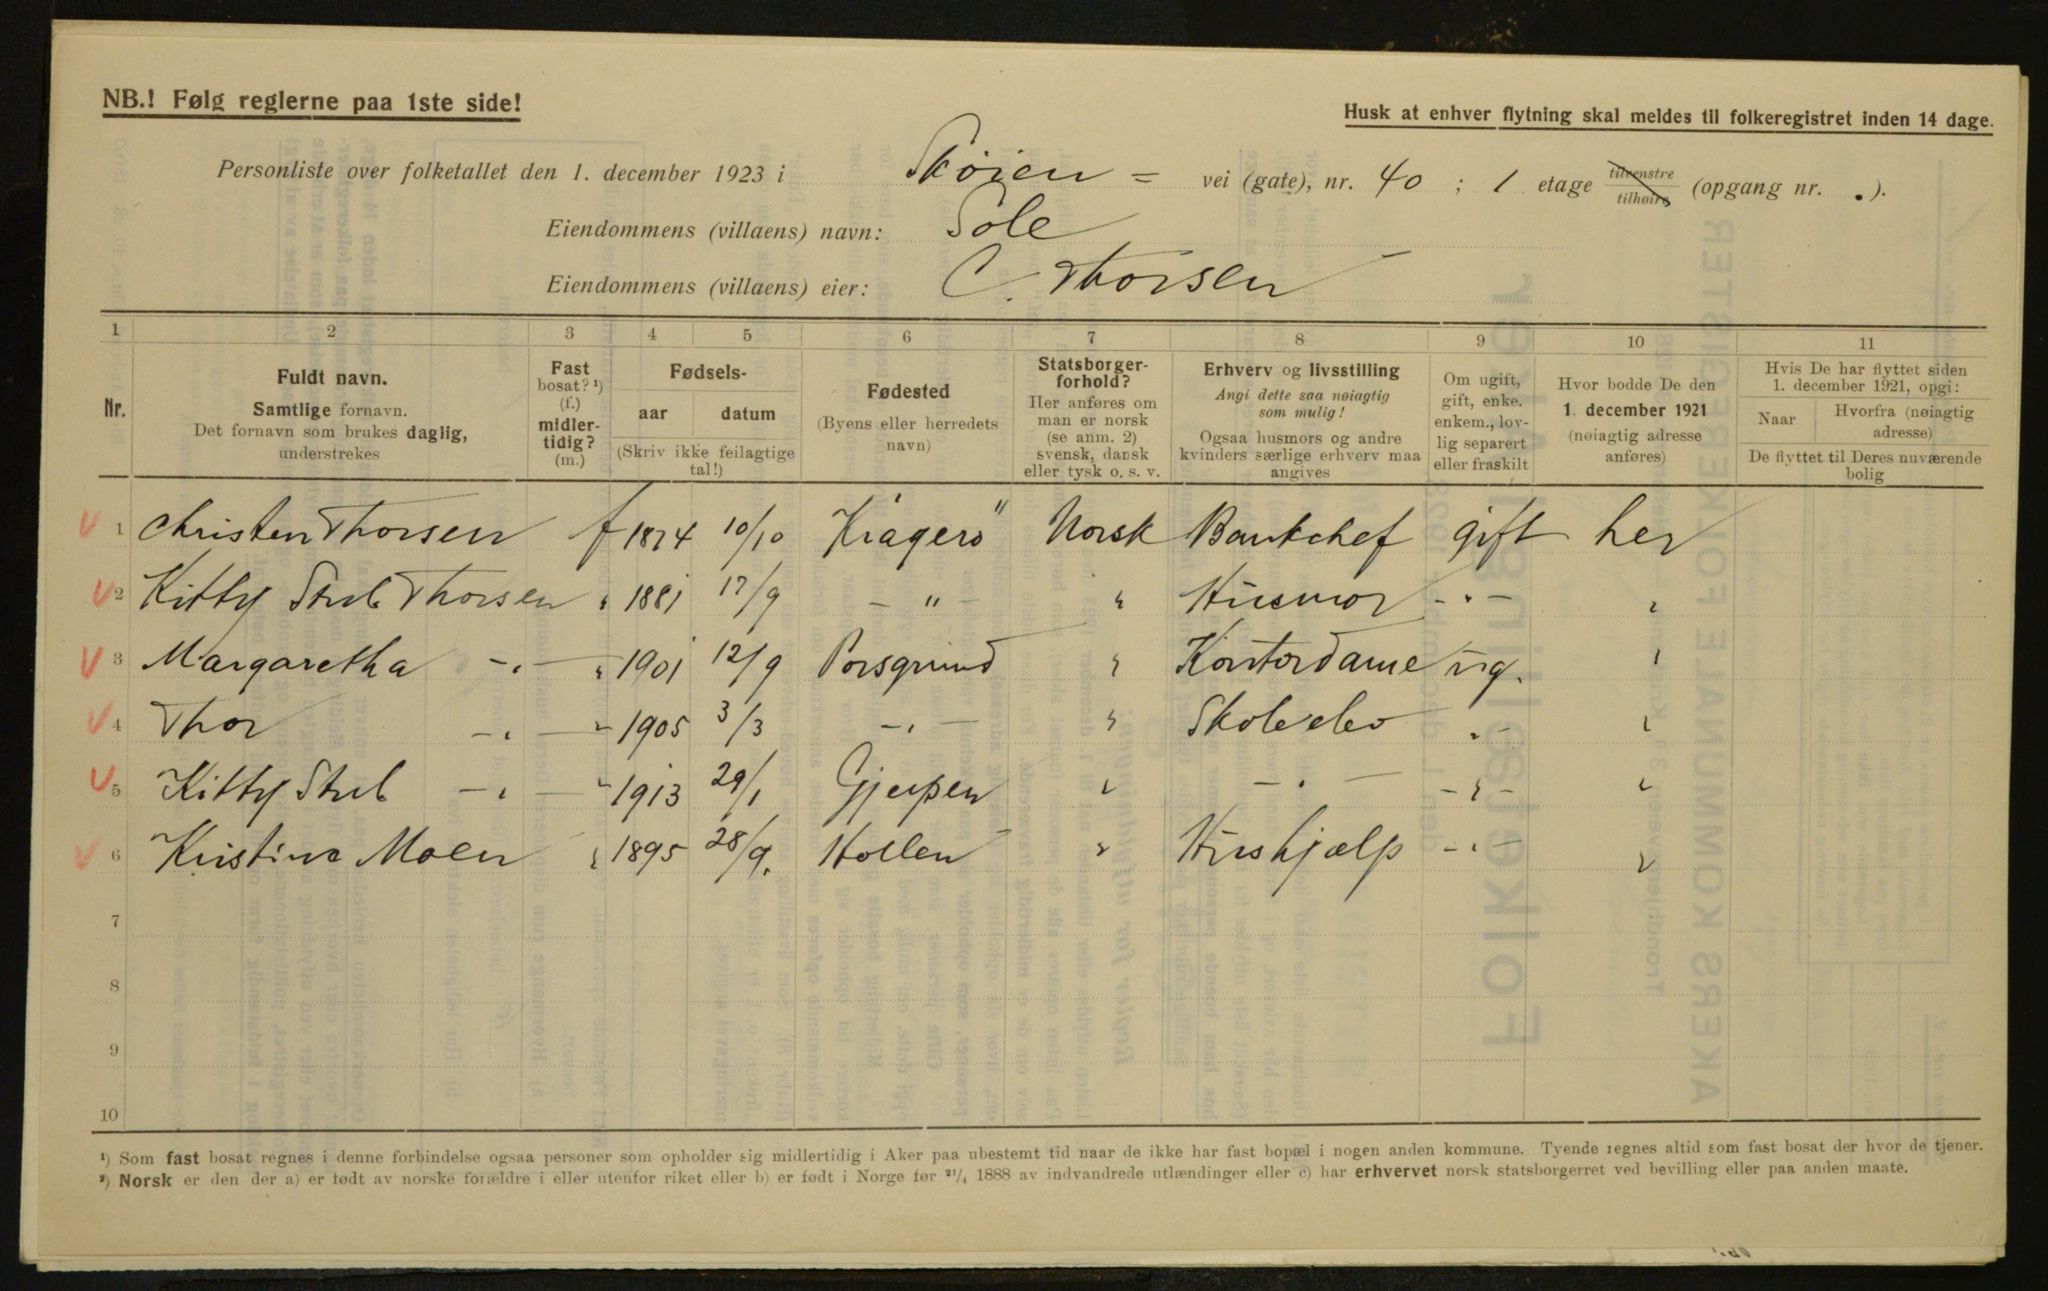 NB.! Følg reglerne paa 1ste side!
Husk at enhver flytning skal meldes til folkeregistret inden 14 dage.
Personliste over folketallet den 1. december 1923 i Skøien = vei (gate), nr. 40 ; 1 etage tilvenstre tilhøire (opgang nr. . ).
Eiendommens (villaens) navn: Sole
Eiendommens (villaens) eier: C. Thorsen
1 2 3 4 5 6 7 8 9 10 11
Nr.
Fuldt navn.
Samtlige fornavn.
Det fornavn som brukes daglig,
understrekes
Fast
bosat? ¹)
(f.)
midler-
tidig?
(m.)
Fødsels-
aar datum
(Skriv ikke feilagtige
tal!)
Fødested
(Byens eller herredets
navn)
Statsborger-
forhold?
Her anføres om
man er norsk
(se anm. 2)
svensk, dansk
eller tysk o. s. v.
Erhverv og livsstilling
Angi dette saa nøiagtig
som mulig!
Ogsaa husmors og andre
kvinders særlige erhverv maa
angives
Om ugift,
gift, enke.
enkem., lov-
lig separert
eller fraskilt
Hvor bodde De den
1. december 1921
(nøiagtig adresse
anføres)
Hvis De har flyttet siden
1. december 1921, opgi:
Naar Hvorfra (nøiagtig
adresse)
De flyttet til Deres nuværende
bolig
1 Christen Thorsen f 1874 10/10 Kragerö Norsk Bankchef gift her
2 Kitty Strub Thorsen " 1881 17/9 - " - " Husmor - " - "
3 Margaretha - " - " 1901 12/9 Porsgrund " Kontordame ug. "
4 Thor - " - " 1905 3/3 - " - " Skoleelev " - "
5 Kitty Strub - " - " 1913 29/1 Gjerpen " - " - - " - "
6 Kristine Moen " 1895 28/9. Hollen " Hushjælp - " - "
7
8
9
10
¹) Som fast bosat regnes i denne forbindelse ogsaa personer som opholder sig midlertidig i Aker paa ubestemt tid naar de ikke har fast bopæl i nogen anden kommune. Tyende regnes altid som fast bosat der hvor de tjener.
²) Norsk er den der a) er født av norske forældre i eller utenfor riket eller b) er født i Norge før 21/4 1888 av indvandrede utlændinger eller c) har erhvervet norsk statsborgerret ved bevilling eller paa anden maate.